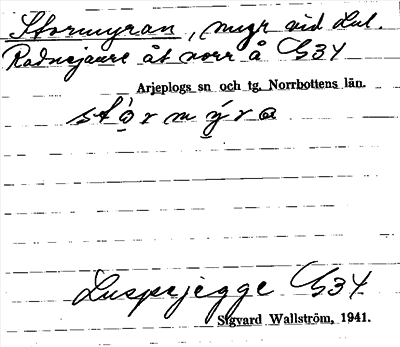 Stormyran, myr vid Lul.
Radnejaure åt norr å G34
Arjeplogs sn och tg. Norrbottens län.
stormyra
Lusperjegge G34.
Sigvard Wallström, 1941.